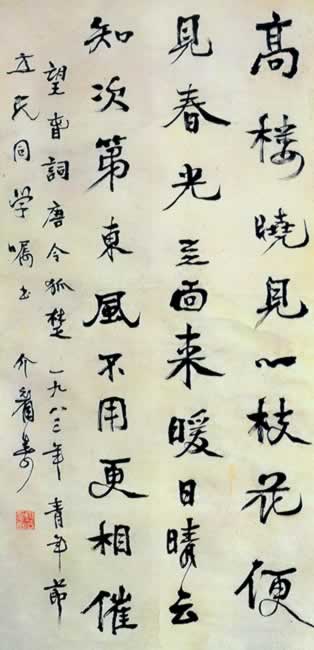 高楼曉見一枝花便
見春光亖面来暖日晴云
知次第東風不用更相催
望春詞唐令狐楚 一九八三年青年節
立民同学嘱书 介眉寿